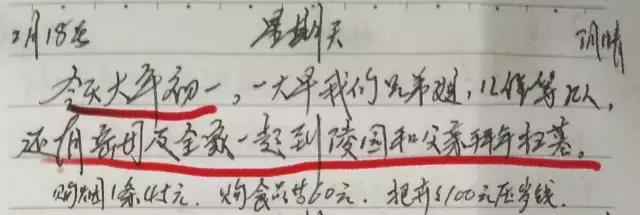 2月18号 星期天 阴晴
今天大年初一,一大早我们兄弟姐,
还有亲母及全家一起到陵园和父亲拜年扫墓。
购烟1条45元,购食品等60元,100元压岁钱。